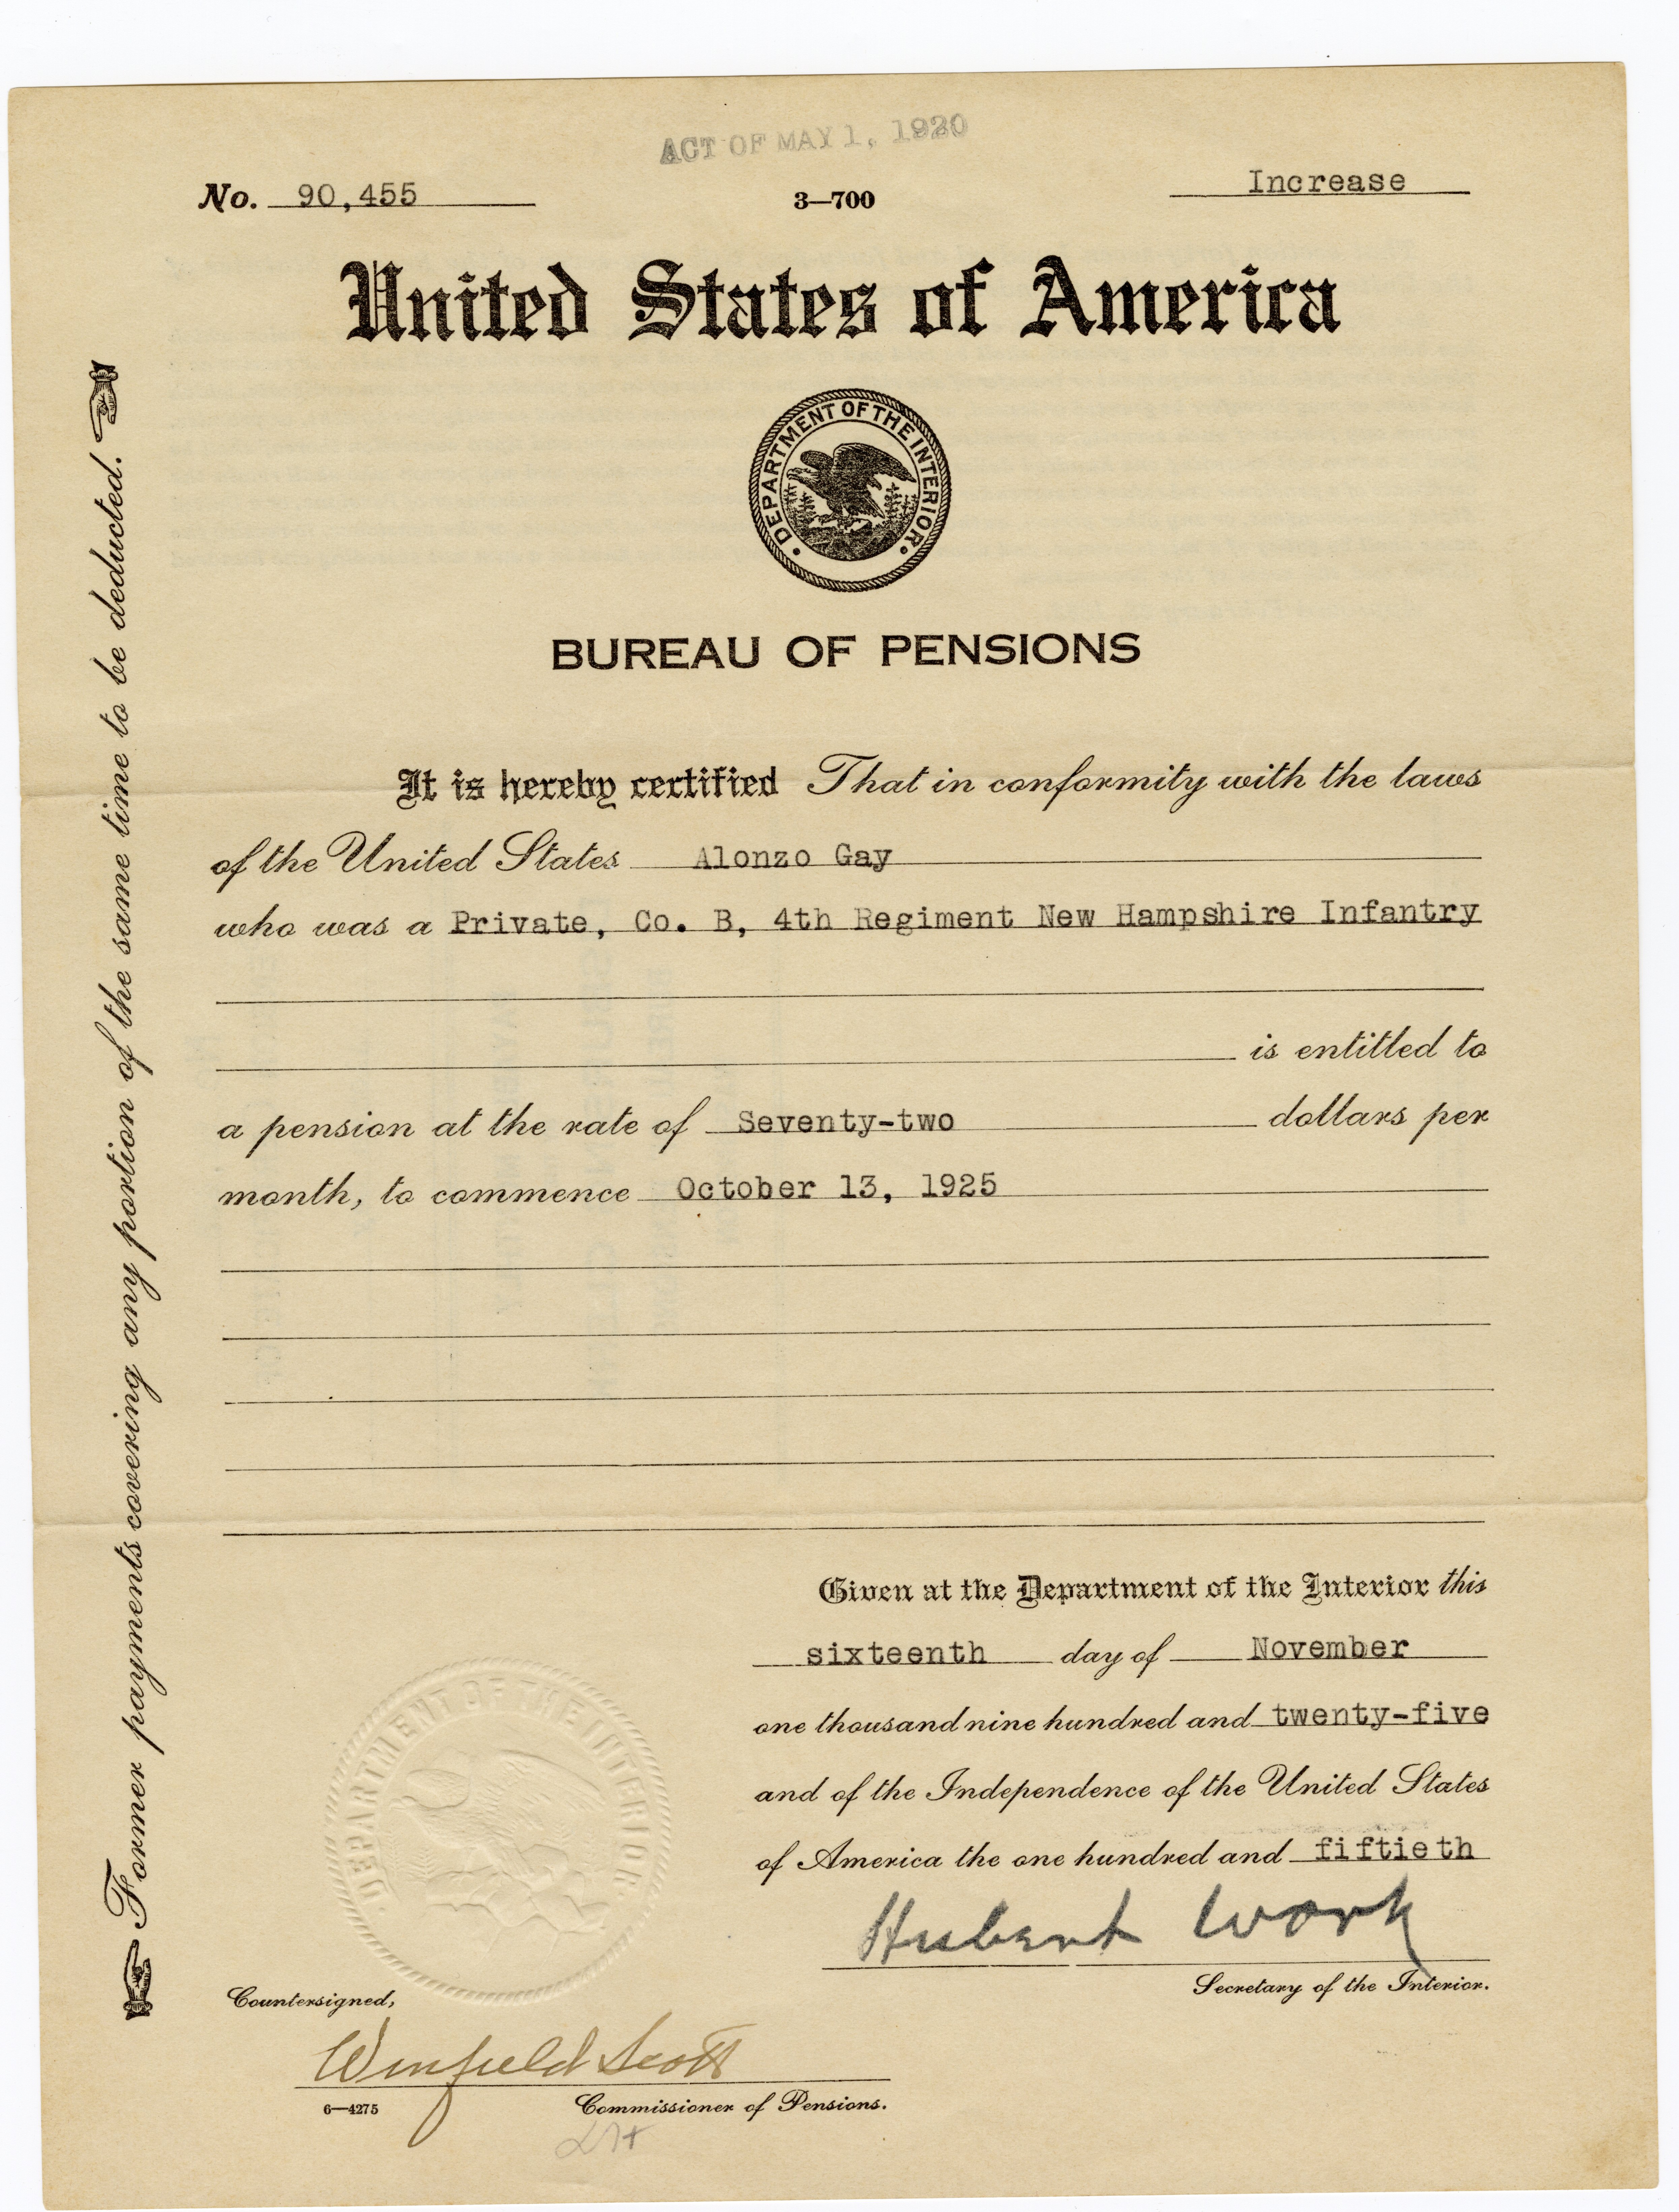 ACT OF MAY 1, 1920
No. 90,455
3—700
Increase
United States of America
DEPARTMENT OF THE INTERIOR
BUREAU OF PENSIONS
It is hereby certified That in conformity with the laws
of the United States Alonzo Gay
who was a Private, Co. B, 4th Regiment New Hampshire Infantry
is entitled to
a pension at the rate of Seventy-two dollars per
month, to commence October 13, 1925
Former payments covering any portion of the same time to be deducted.
Given at the Department of the Interior this
sixteenth day of November
one thousand nine hundred and twenty-five
and of the Independence of the United States
of America the one hundred and fiftieth
Hubert Work
Secretary of the Interior.
DEPARTMENT OF THE INTERIOR
Countersigned,
Winfield Scott
6—4275
Commissioner of Pensions.